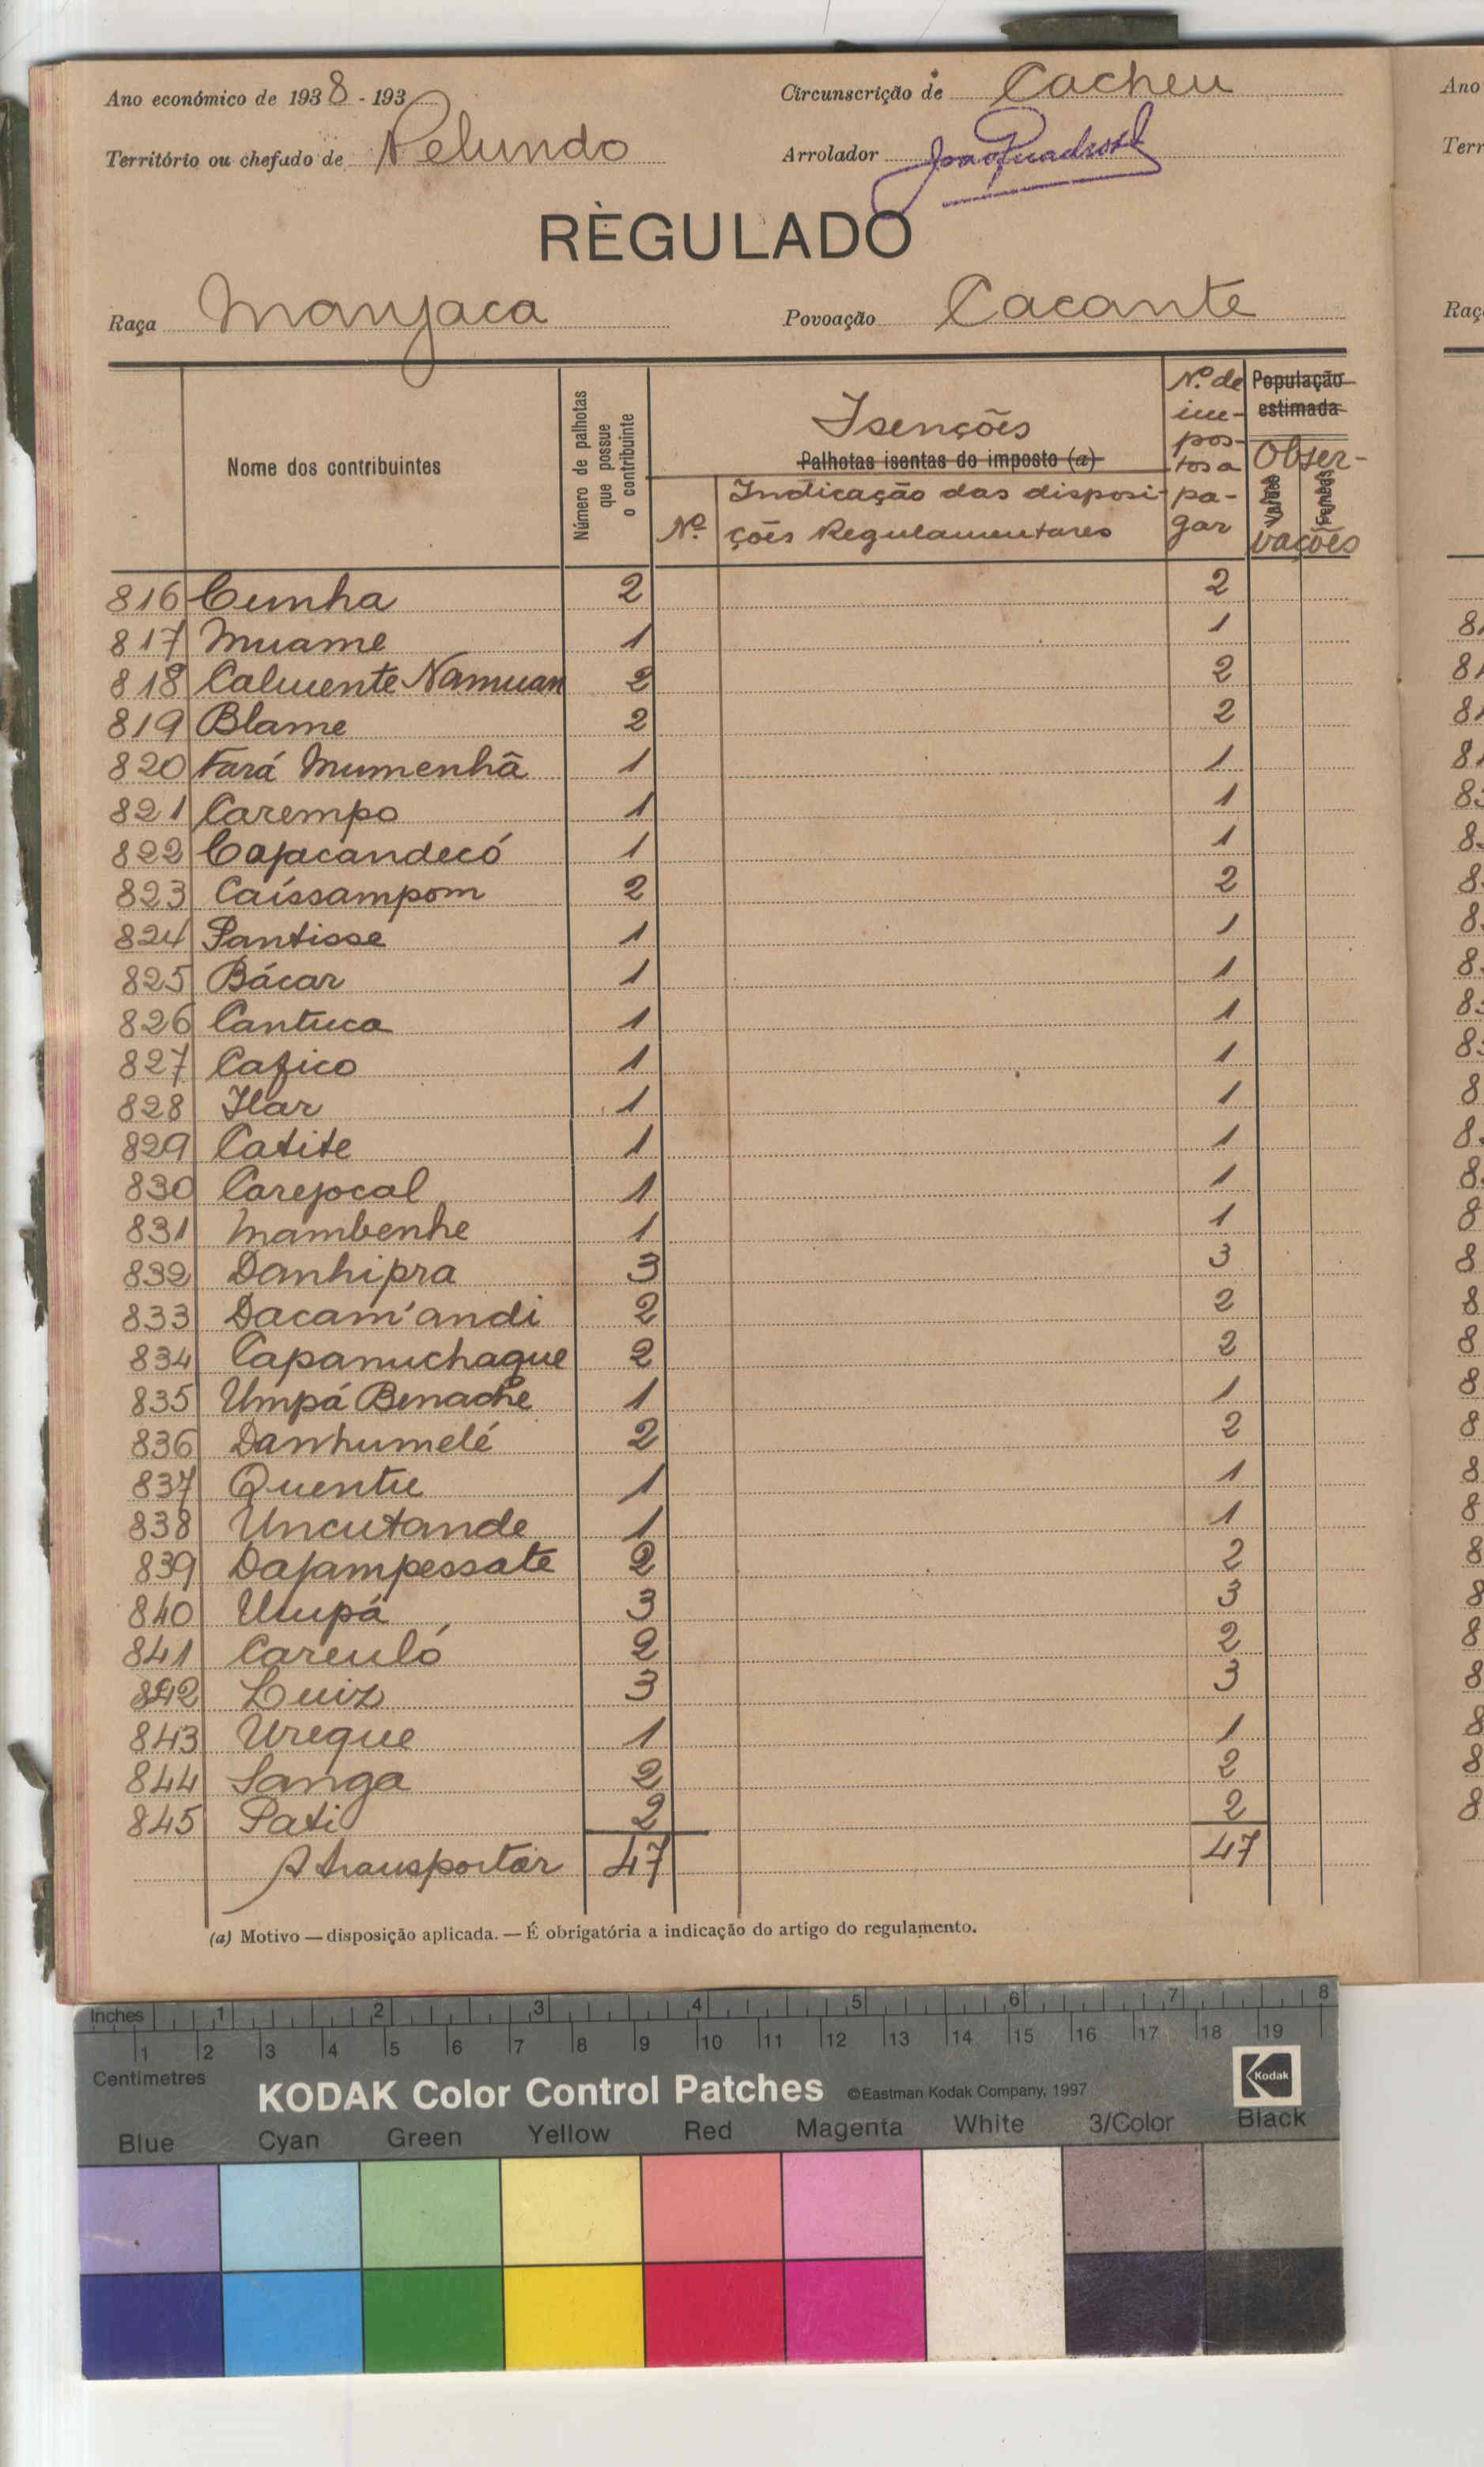 Ano económico de 1938 - 193
Circunscrição de Cacheu
Território ou chefado de Pelundo
Arrolador
RÈGULADO
Raça Manjaca
Povoação Cacante
Nome dos contribuintes
Número de palhotas que possue o contribuinte
Isenções
Palhotas isentas do imposto (a)
Nº
Indicação das disposi-
ções Regulamentares
Nº de
im-
pos-
tos a
pa-
gar
População
estimada
Obser-
vações
816 Cunha 2 2
817 Muame 1 1
818 Calmente Namuan 2 2
819 Blame 2 2
820 Fará Mumenhã 1 1
821 Carempo 1 1
822 Cajacandecó 1 1
823 Caíssampom 2 2
824 Pantisse 1 1
825 Bácar 1 1
826 Cantuca 1 1
827 Cafico 1 1
828 Ilar 1 1
829 Catite 1 1
830 Carejocal 1 1
831 Mambenhe 1 1
832 Danhipra 3 3
833 Dacam'andi 2 2
834 Capanuchaque 2 2
835 Umpá Benache 1 1
836 Danhumelé 2 2
837 Quentu 1 1
838 Uncutande 1 1
839 Dajampessate 2 2
840 Umpá 3 3
841 Careuló 2 2
842 Luiz 3 3
843 Ureque 1 1
844 Sanga 2 2
845 Pati 2 2
A transportar 47 47
(a) Motivo — disposição aplicada. — É obrigatória a indicação do artigo do regulamento.
Inches 1 2 3 4 5 6 7 8
1 2 3 4 5 6 7 8 9 10 11 12 13 14 15 16 17 18 19
Centimetres
KODAK Color Control Patches ©Eastman Kodak Company, 1997 Kodak
Blue Cyan Green Yellow Red Magenta White 3/Color Black